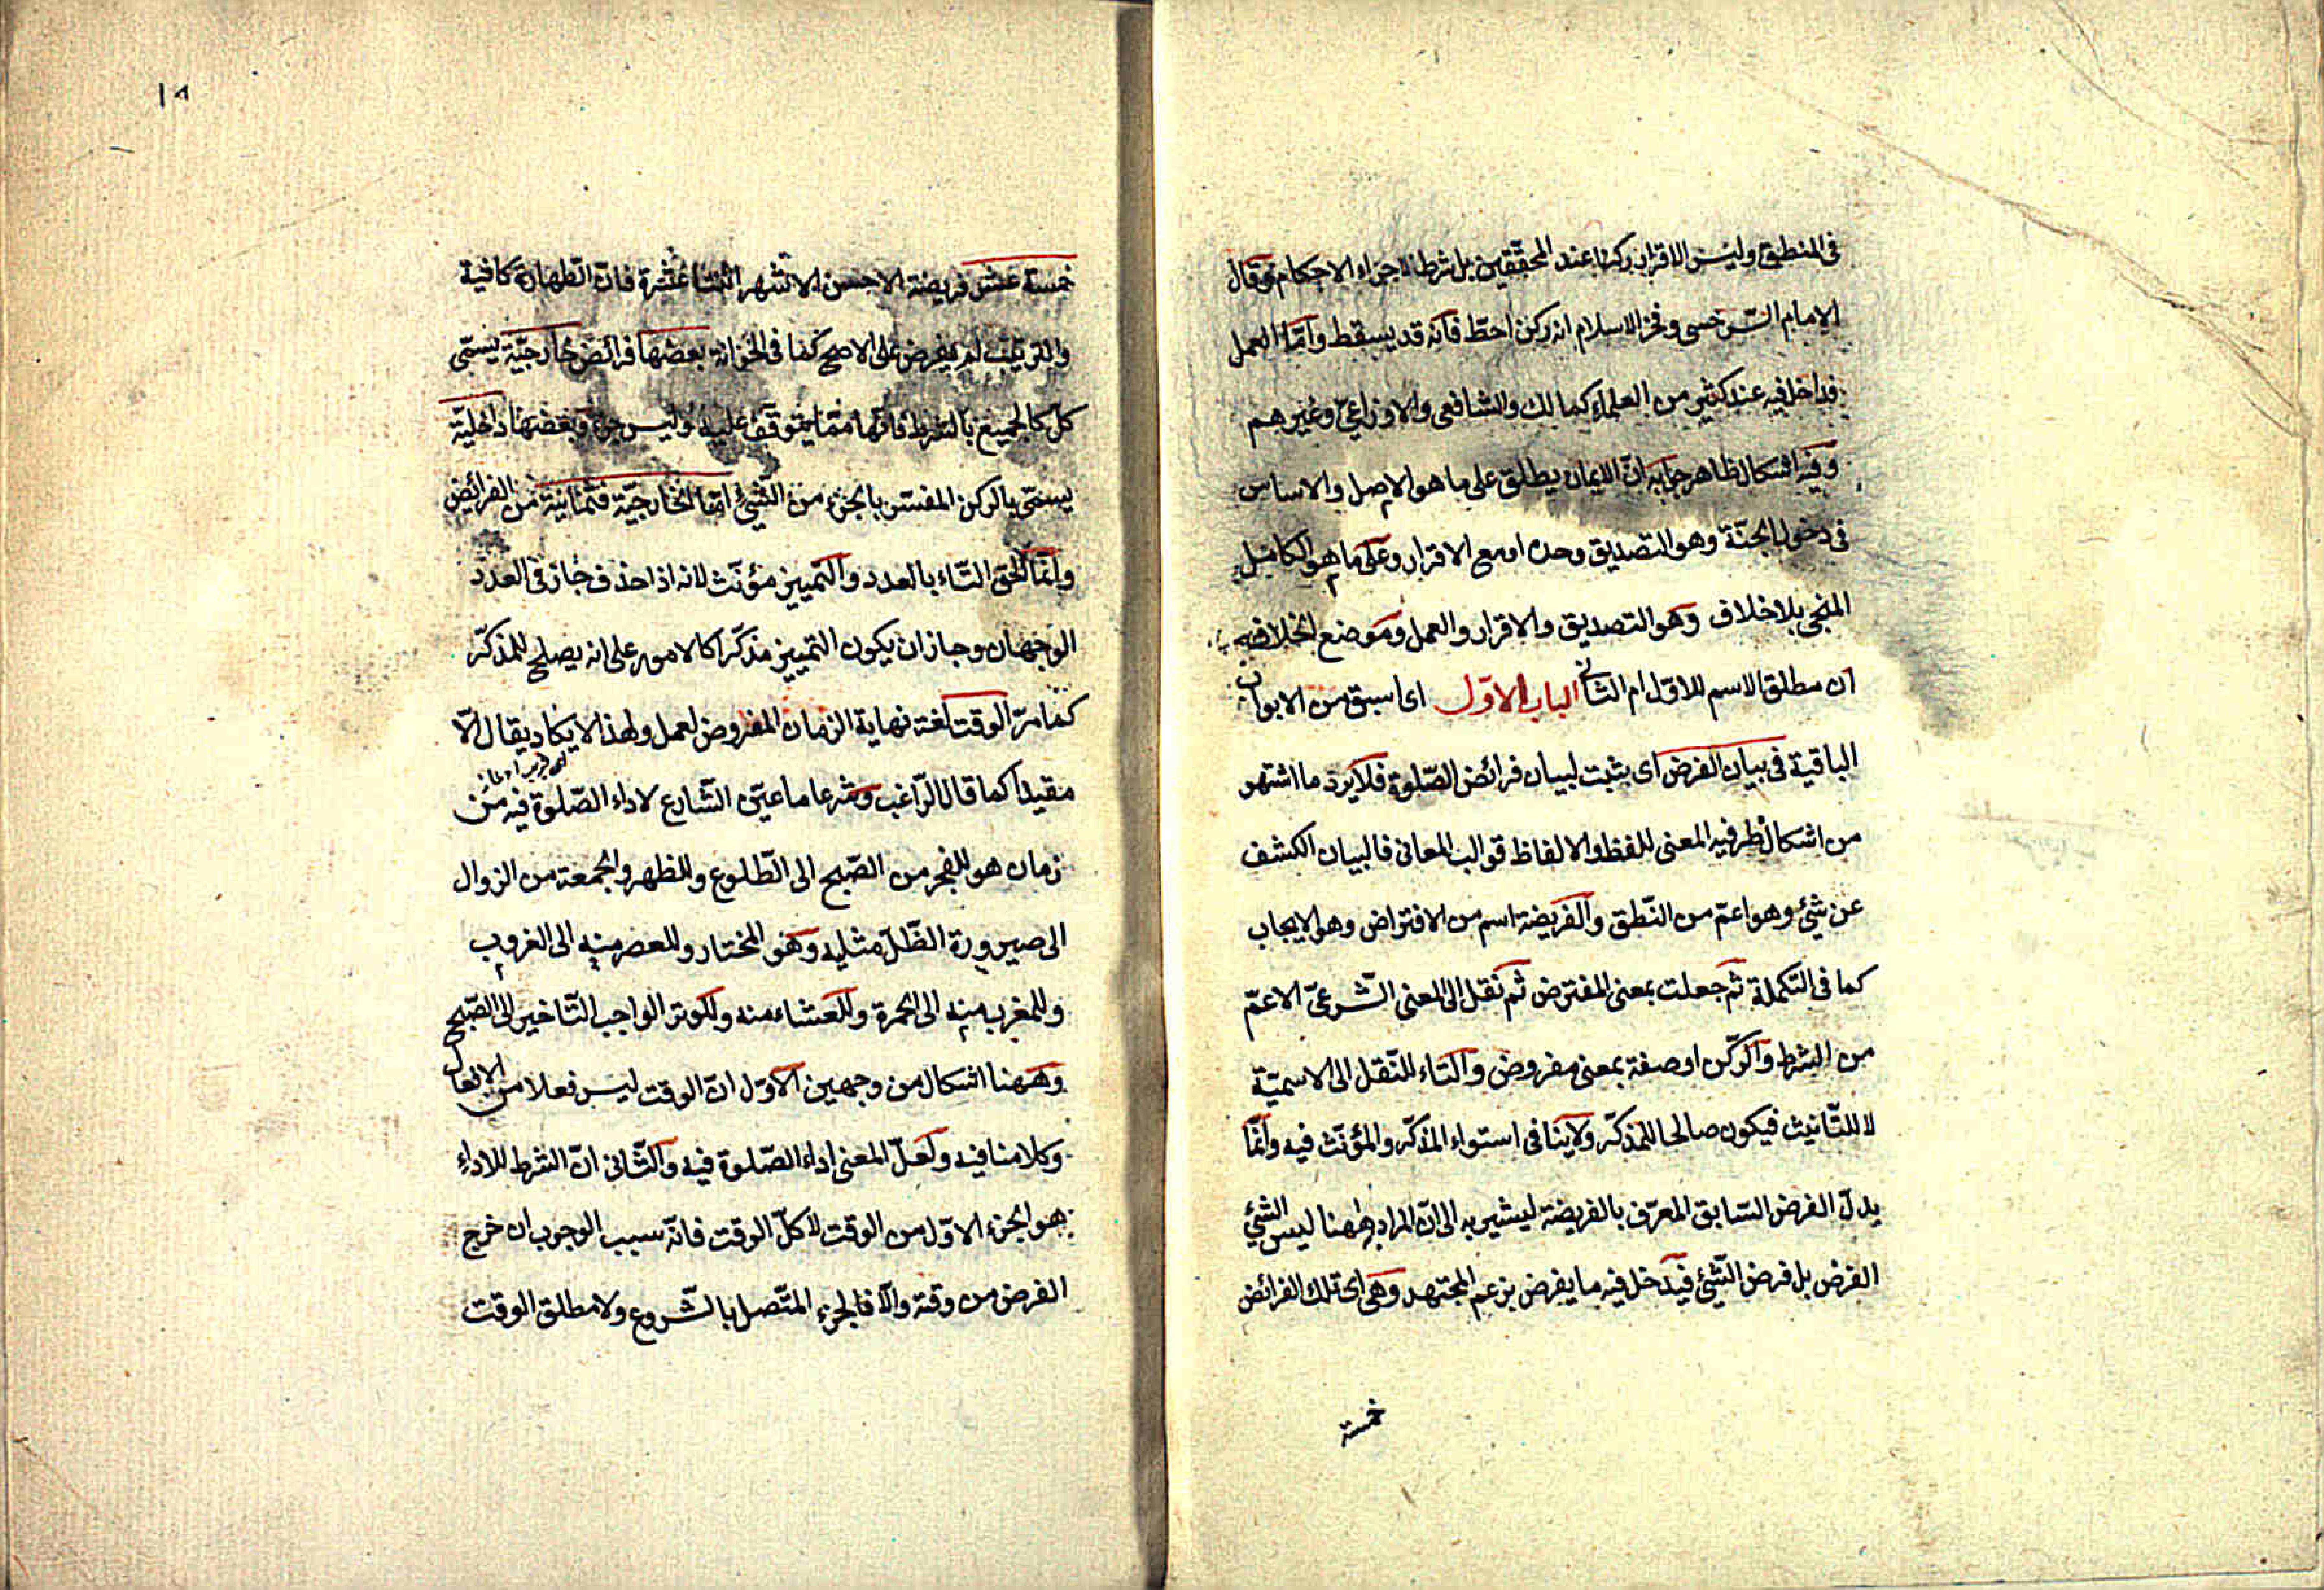 فى المنطق وليس الاقرار ركنا عند المحققين بل شرط لاجراء الاحكام وقال
الامام السّرخسى وفخر الاسلام انه ركن احطّ فانه قد يسقط وامّا العمل
فداخل فيه عند كثير من العلماء كمالك والشافعى والاوزاعىّ وغيرهم
وفيه اشكال ظاهر جوابه انّ الايمان يطلق على ما هو الاصل والاساس
فى دخول الجنّة وهو التصديق وحده او مع الاقرار وعلى ما هو الكامل
المنجى بلا خلاف وهو التصديق والاقرار والعمل وموضع الخلاف فيه
ان مطلق الاسم للاوّل ام الثانى الباب الاوّل اى اسبق من الابواب
الباقية فى بيان الفرض اى يثبت لبيان فرائض الصّلوة فلا يرد ما اشتهر
من اشكال ظرفيه المعنى للفظ والالفاظ قوالب المعانى فالبيان الكشف
عن شئ وهو اعمّ من النّطق والفريضة اسم من الافتراض وهو الايجاب
كما فى التّكملة ثم جعلت بمعنى المفترض ثم نقل الى المعنى الشّرعىّ الاعمّ
من الشرط والرّكن او صفة بمعنى مفروض والتاء للنّقل الى الاسميّة
لا للتّانيث فيكون صالحا للمذكّر ولا ينافى استواء المذكّر والمؤنّث فيه وانّما
يدلّ الفرض السّابق المعرّف بالفريضة ليشير به الى انّ المراد ههنا ليس الشئ
الفرض بل فرض الشّئ فيدخل فيه ما يفرض بزعم المجتهد وهى اى تلك الفرائض
خمسة
١٨
خمسة عشر فريضة الاحسن الاشهر اثنتا عشرة فانّ الطهارة كافية
والترتيب لم يفرض على الاصح كما فى الخزانة بعضها فرائض خارجيّة يسمّى
كلّ كالجميع بالشرط فانّها ممّا يتوقّف عليه وليس جزء وبعضها داخليّة
يسمّى بالركن المفسّر بالجزء من الشّئ امّا الخارجيّة فثمانية من الفرائض
وانّما الحق التّاء بالعدد والتّمييز مؤنّث لانه اذا حذف جاز فى العدد
الوجهان وجاز ان يكون التّمييز مذكّرا كالامور على انه يصلح للمذكّر
كما مرّ الوقت لغة نهاية الزمان المفروض لعمل ولهذا لا يكاد يقال الّا
مقيدا كما قال الرّاغب وشرعا ما عيّن الشّارع لاداء الصّلوة فيه من
زمان هو للفجر من الصّبح الى الطّلوع وللظهر والجمعة من الزوال
الى صيرورة الظّلّ مثليه وهو المختار وللعصر منه الى الغروب
وللمغرب منه الى الحمرة وللعشاء منه وللوتر الواجب التّاخير الى الصّبح
وههنا اشكال من وجهين الاوّل انّ الوقت ليس فعلا من الافعال
وكلامنا فيه ولعلّ المعنى اداء الصّلوة فيه والثّانى انّ الشرط للاداء
هو الجزء الاوّل من الوقت لا كلّ الوقت فانّه سبب الوجوب ان خرج
الفرض من وقته والّا فالجزء المتّصل بالشّروع ولا مطلق الوقت